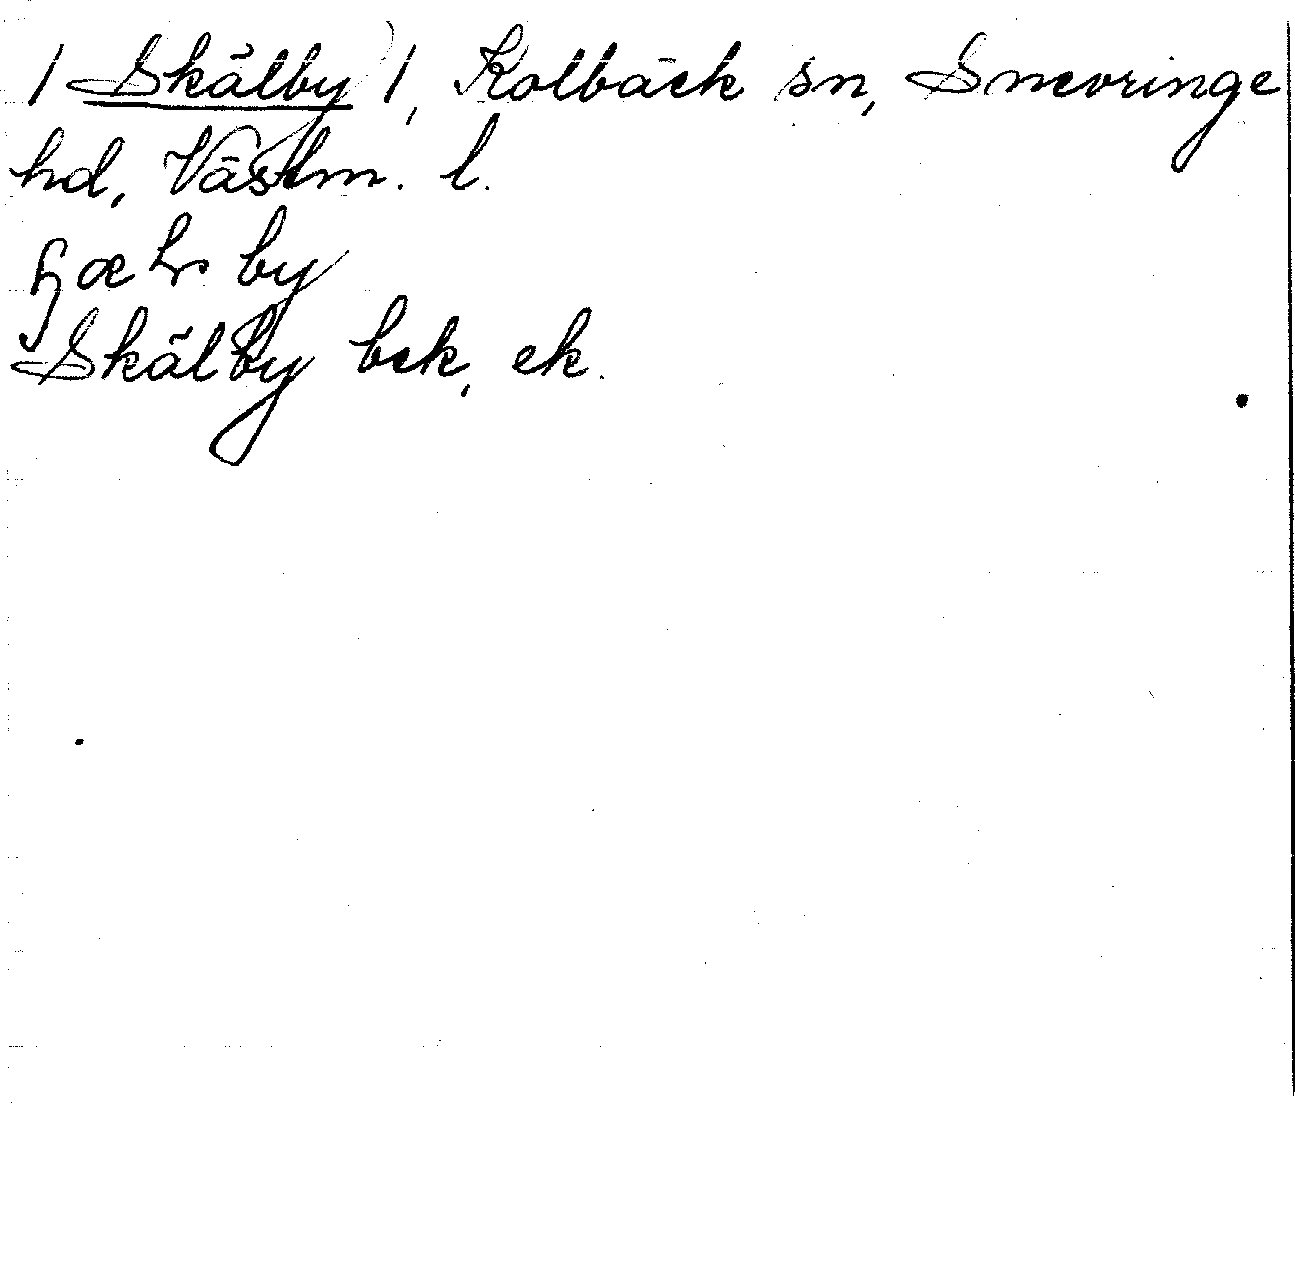 / Skälby /, Kolbäck sn, Snevringe
hd, Västm. l.
by
Skälby bek, ek.